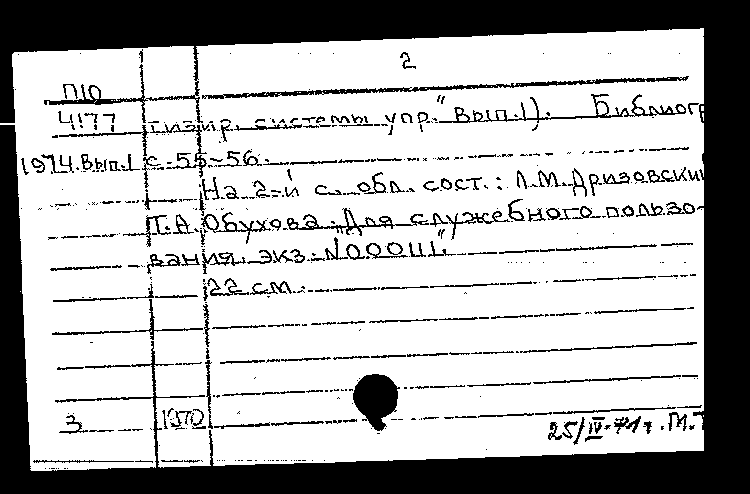 2
П10
4!77 тизир. системы упр." Вып.1). Библиогр
1974.Вып.1 с. 55-56.
На 2-й с. обл. сост.: Л.М.Дризовский
Т.А.Обухова. "Для служебного пользо-
вания. экз. N00011".
22 см.
3 1970
25/IV-71г. М.Т